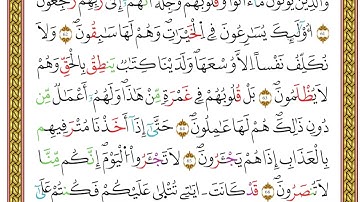 وَالَّذِينَ يُؤْتُونَ مَا ءَاتَوا وَّقُلُوبُهُمْ وَجِلَةٌ أَنَّهُمْ إِلَىٰ رَبِّهِمْ رَٰجِعُونَ
أُوْلَٰٓئِكَ يُسَٰرِعُونَ فِى ٱلْخَيْرَٰتِ وَهُمْ لَهَا سَٰبِقُونَ وَلَا
نُكَلِّفُ نَفْسًا إِلَّا وُسْعَهَا وَلَدَيْنَا كِتَٰبٌ يَنطِقُ بِالْحَقِّ وَهُمْ
لَا يُظْلَمُونَ بَلْ قُلُوبُهُمْ فِى غَمْرَةٍ مِّنْ هَٰذَا وَلَهُمْ أَعْمَٰلٌ مِّن
دُونِ ذَٰلِكَ هُمْ لَهَا عَٰمِلُونَ حَتَّىٰٓ إِذَآ أَخَذْنَا مُتْرَفِيهِم
بِالْعَذَابِ إِذَا هُمْ يَجْـَٔرُونَ لَا تَجْـَٔرُوا۟ ٱلْيَوْمَ إِنَّكُم مِّنَّا
لَا تُنصَرُونَ قَدْ كَانَتْ ءَايَٰتِى تُتْلَىٰ عَلَيْكُمْ فَكُنتُمْ عَلَىٰٓ